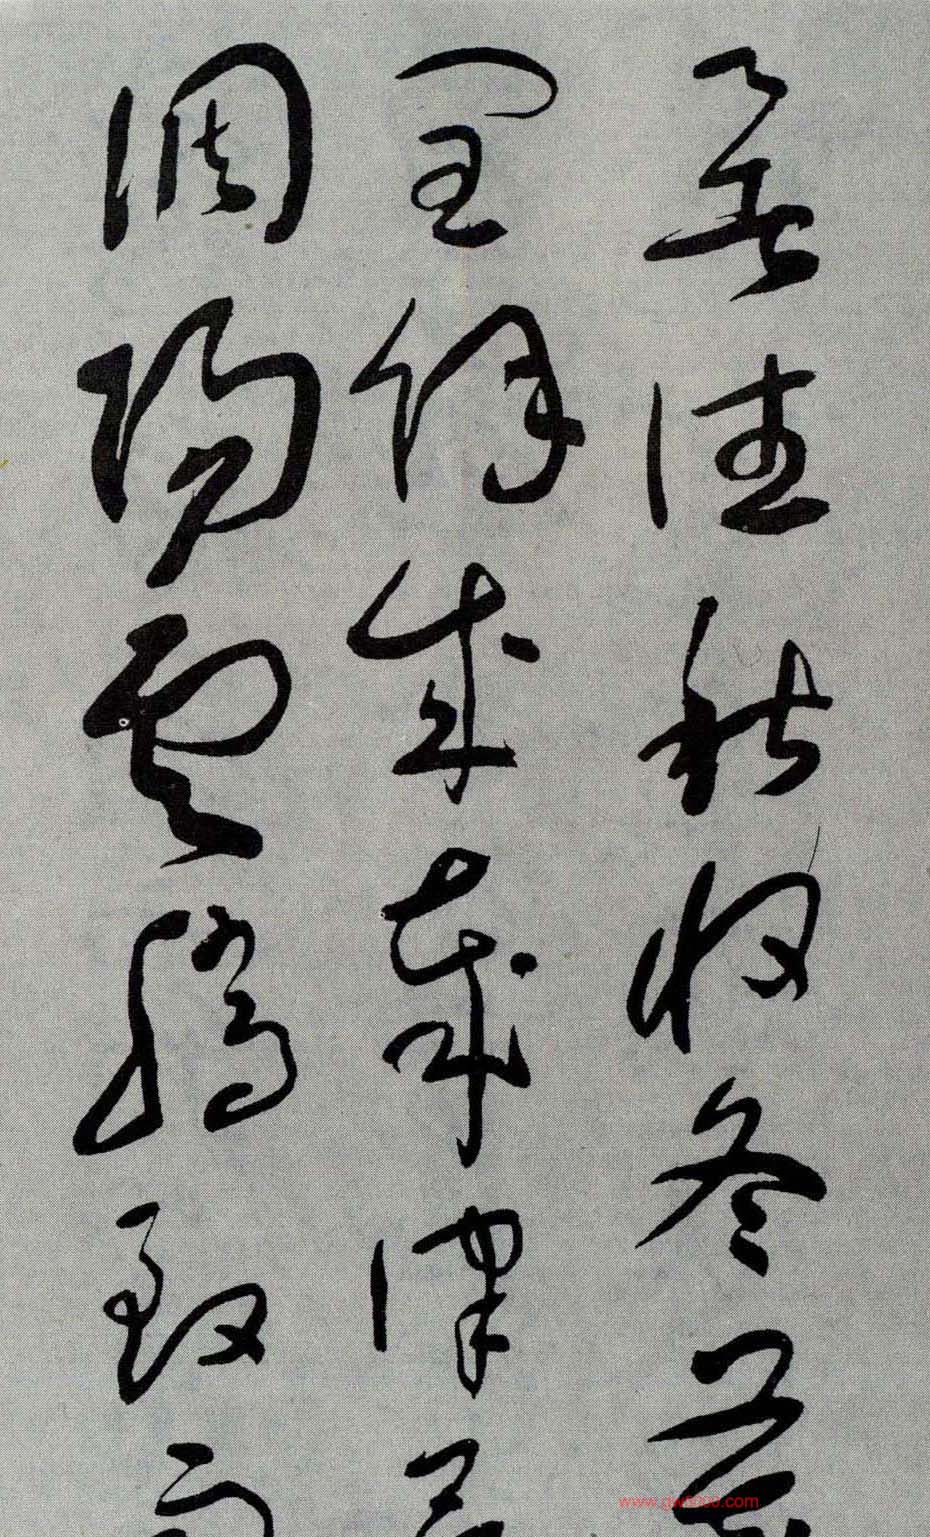 暑往秋收冬藏
閏餘成歲律呂
調陽雲騰致雨
www.gw5000.com